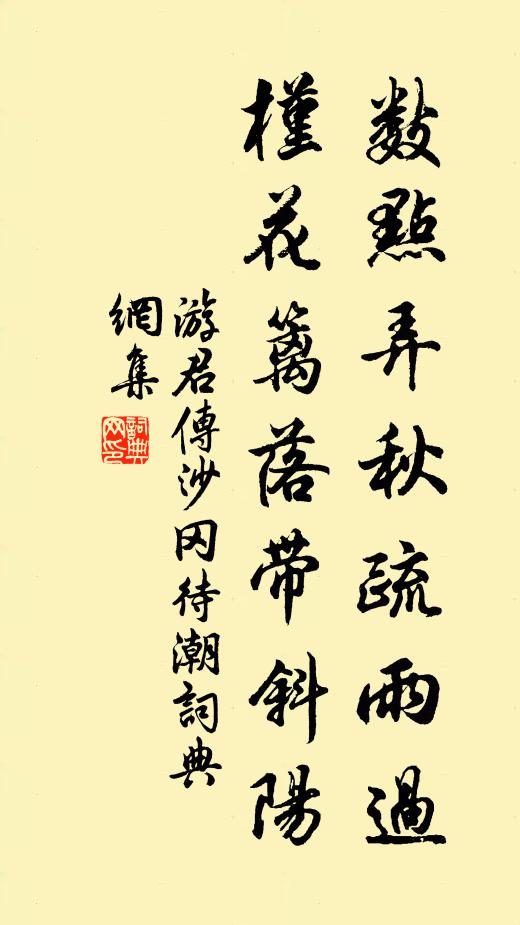 數點弄秋疏雨過
槿花籬落帶斜陽
游君傳沙冈待潮詞典
網集
詞典
网印